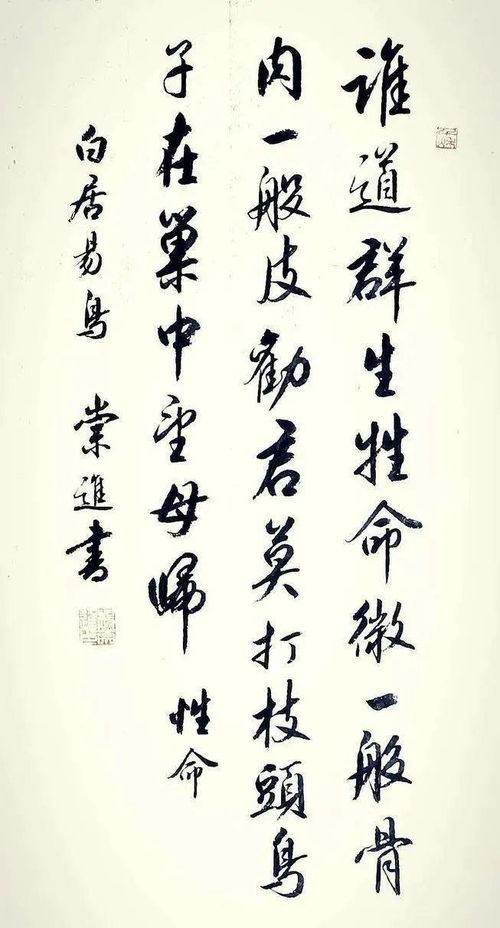 誰道群生牲命微一般骨
肉一般皮勸君莫打枝頭鳥
子在巢中望母歸 性命
白居易鳥 進書